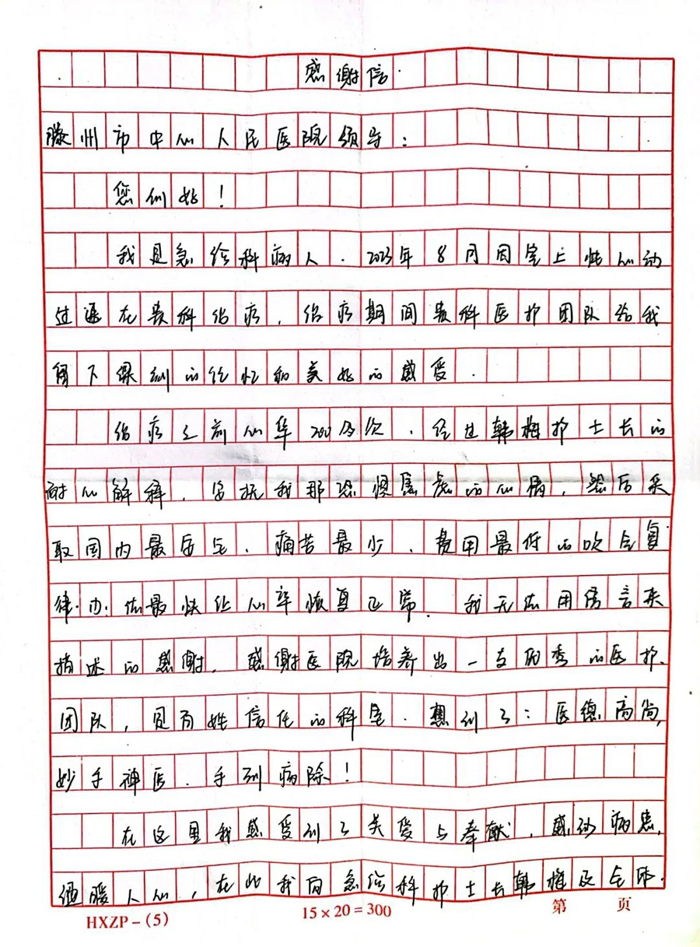 感谢信
滕州市中心人民医院领导:
您们好!
我是急诊科病人.2023年8月因室上性心动
过速在贵科治疗,治疗期间贵科医护团队给我
留下深刻的记忆和美好的感受.
治疗之前心率200多次.经过韩梅护士长的
耐心解释,安抚我那恐惧焦虑的心情,然后采
取国内最后先、痛苦最少、费用最低的吹气复
律.办法最快让心率恢复正常.我无法用语言来
描述的感谢.感谢医院培养出一支优秀的医护
团队,是百姓信任的科室.想到了:医德高尚,
妙手神医.手到病除!
在这里我感受到了关爱与奉献,感动病患,
温暖人心,在此我向急诊科护士长韩梅及全体.
HXZP-(5) 15×20=300 第 页